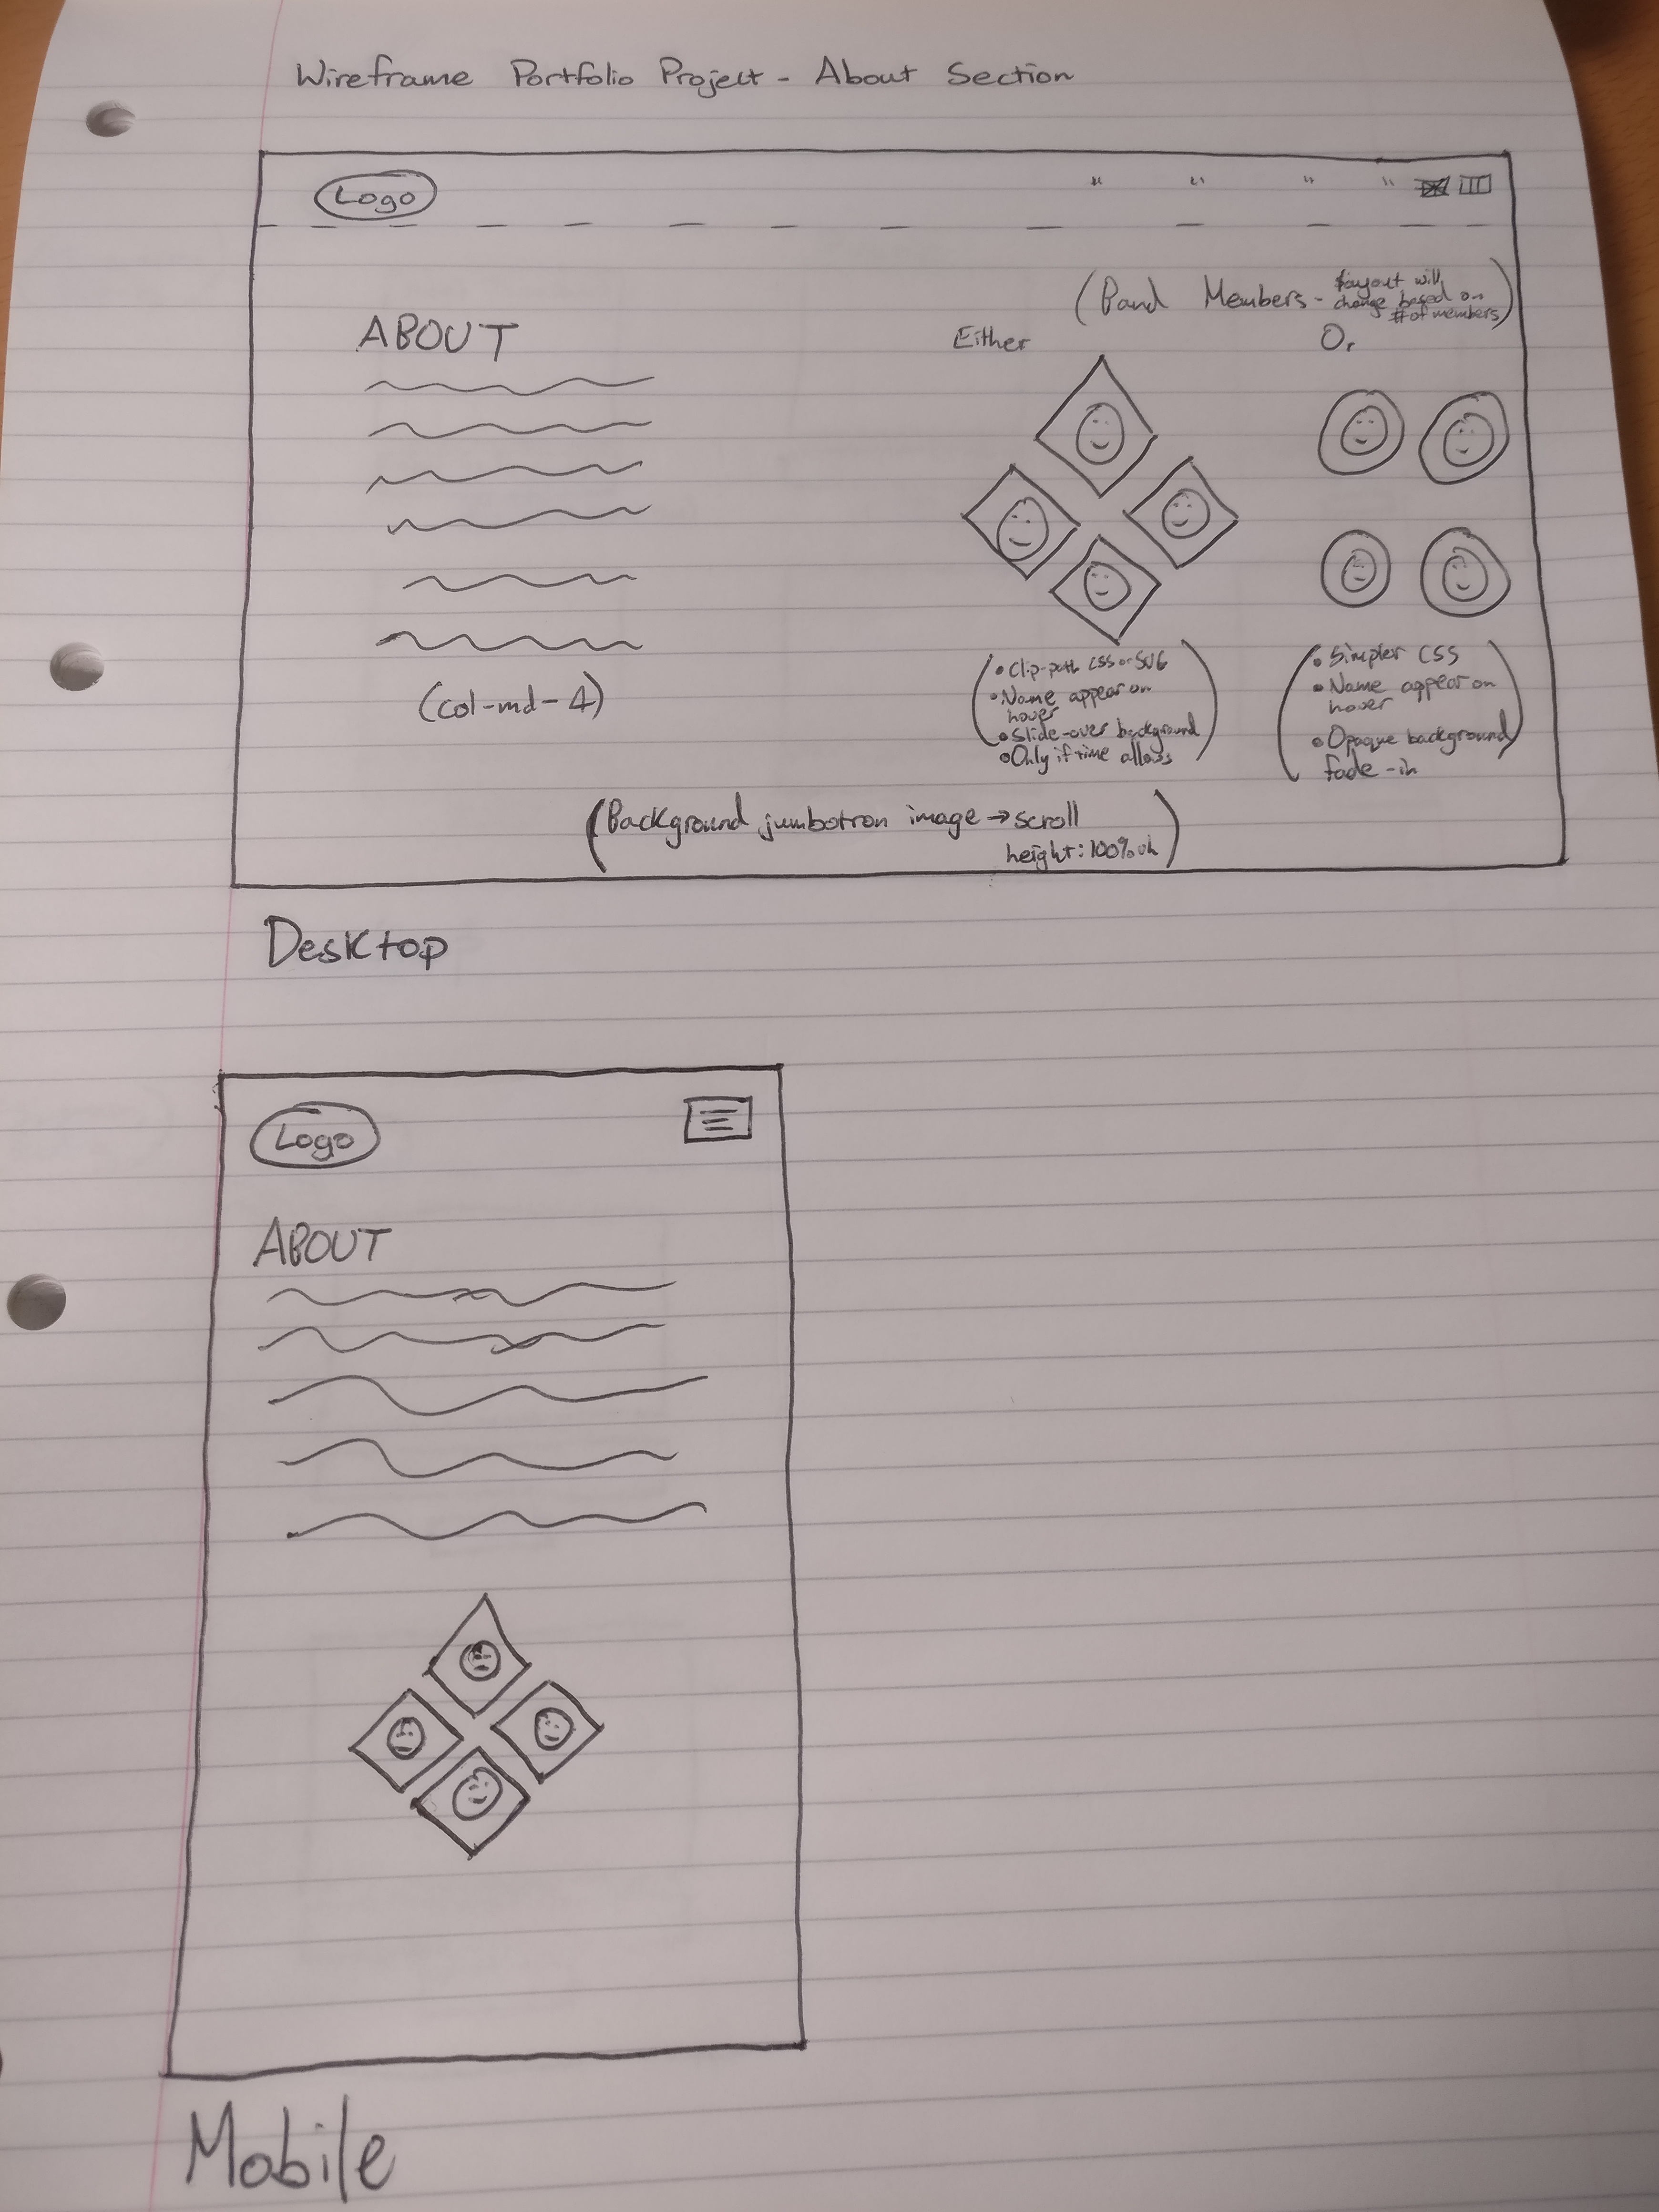 Wireframe Portfolio Project - About Section
Logo
" " " "
(Band Members - Layout will
change based on
# of members)
ABOUT
Either
Or
(col-md-4)
(• Clip-path CSS or SVG
• Name appear on
hover
• Slide-over background
• Only if time allows)
(• Simpler CSS
• Name appear on
hover
• Opaque background
fade-in)
(Background jumbotron image → scroll
height: 100% vh)
Desktop
Logo
ABOUT
Mobile